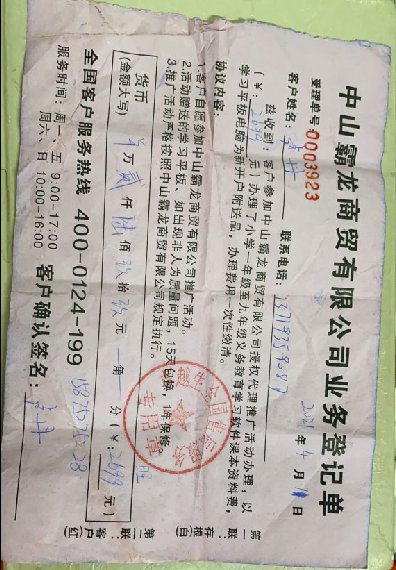 中山霸龙商贸有限公司业务登记单
受理单号:0003923 2021年4月11日
客户姓名: 联系电话:
兹收到,客户参加中山霸龙商贸有限公司授权代理推广活动办理,以
(¥:2699元)办理了小学一年级至九年级义务教育学习软件课本资料费,
学习平板电脑为新开户附送品,办理费用一次性缴清。
协议内容:
1.客户自愿参加中山霸龙商贸有限公司推广活动。
2.活动赠送的学习平板、如出现非人为质量问题,15天包换,1年保修。
3.推广活动严格按照中山霸龙商贸有限公司规定执行。
货币
(金额大写) 万贰仟陆佰玖拾玖元 角 分(¥:2699元)
全国客户服务热线 400-0124-199
服务时间:周一、五 9:00-17:00
周六、日 10:00-16:00 客户确认签名:
第一联:存根(白)
第二联:客户(红)